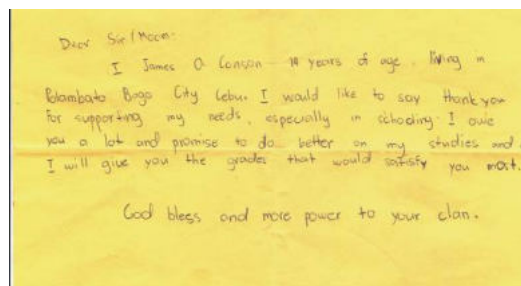 Dear Sir/Maam.
I James O. Conson 19 years of age, living in
Polambato Bogo City Cebu. I would like to say thank you
for supporting my needs, especially in schooling. I owe
you a lot and promise to do better on my studies and
I will give you the grades that would satisfy you most.
God bless and more power to your clan.